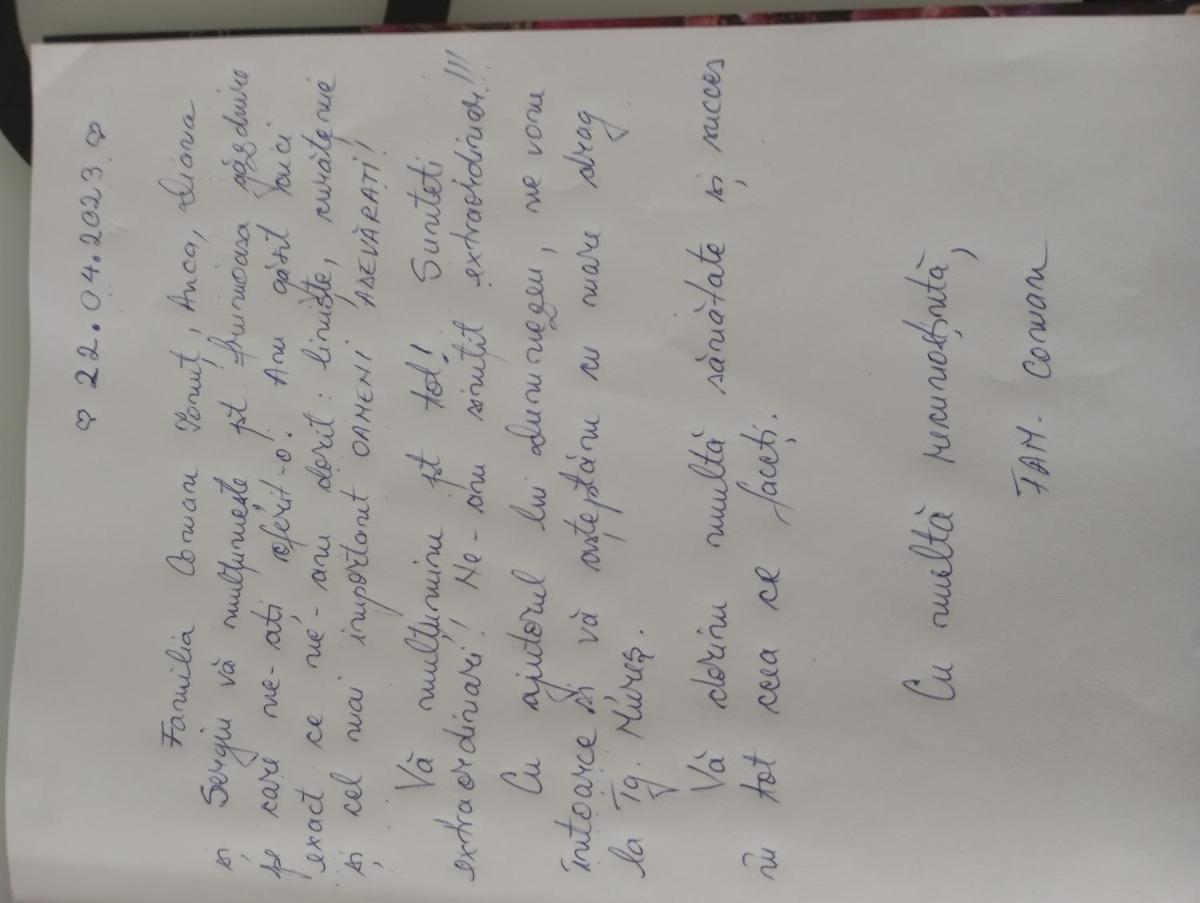 ♡ 22.04.2023 ♡
Familia Coman Ionuț, Anca, Diana
și Sergiu vă mulțumește pt. frumoasa găzduire
pe care ne-ați oferit-o! Am găsit aici
exact ce ne-am dorit: liniște, curățenie
și cel mai important OAMENI ADEVĂRAȚI!
Vă mulțumim pt tot! Sunteți
extraordinari! Ne-am simțit extraordinar!!!
Cu ajutorul lui Dumnezeu, ne vom
întoarce și vă așteptăm cu mare drag
la Tg. Mureș.
Vă dorim multă sănătate și succes
în tot ceea ce faceți.
Cu multă recunoștință,
FAM. Coman